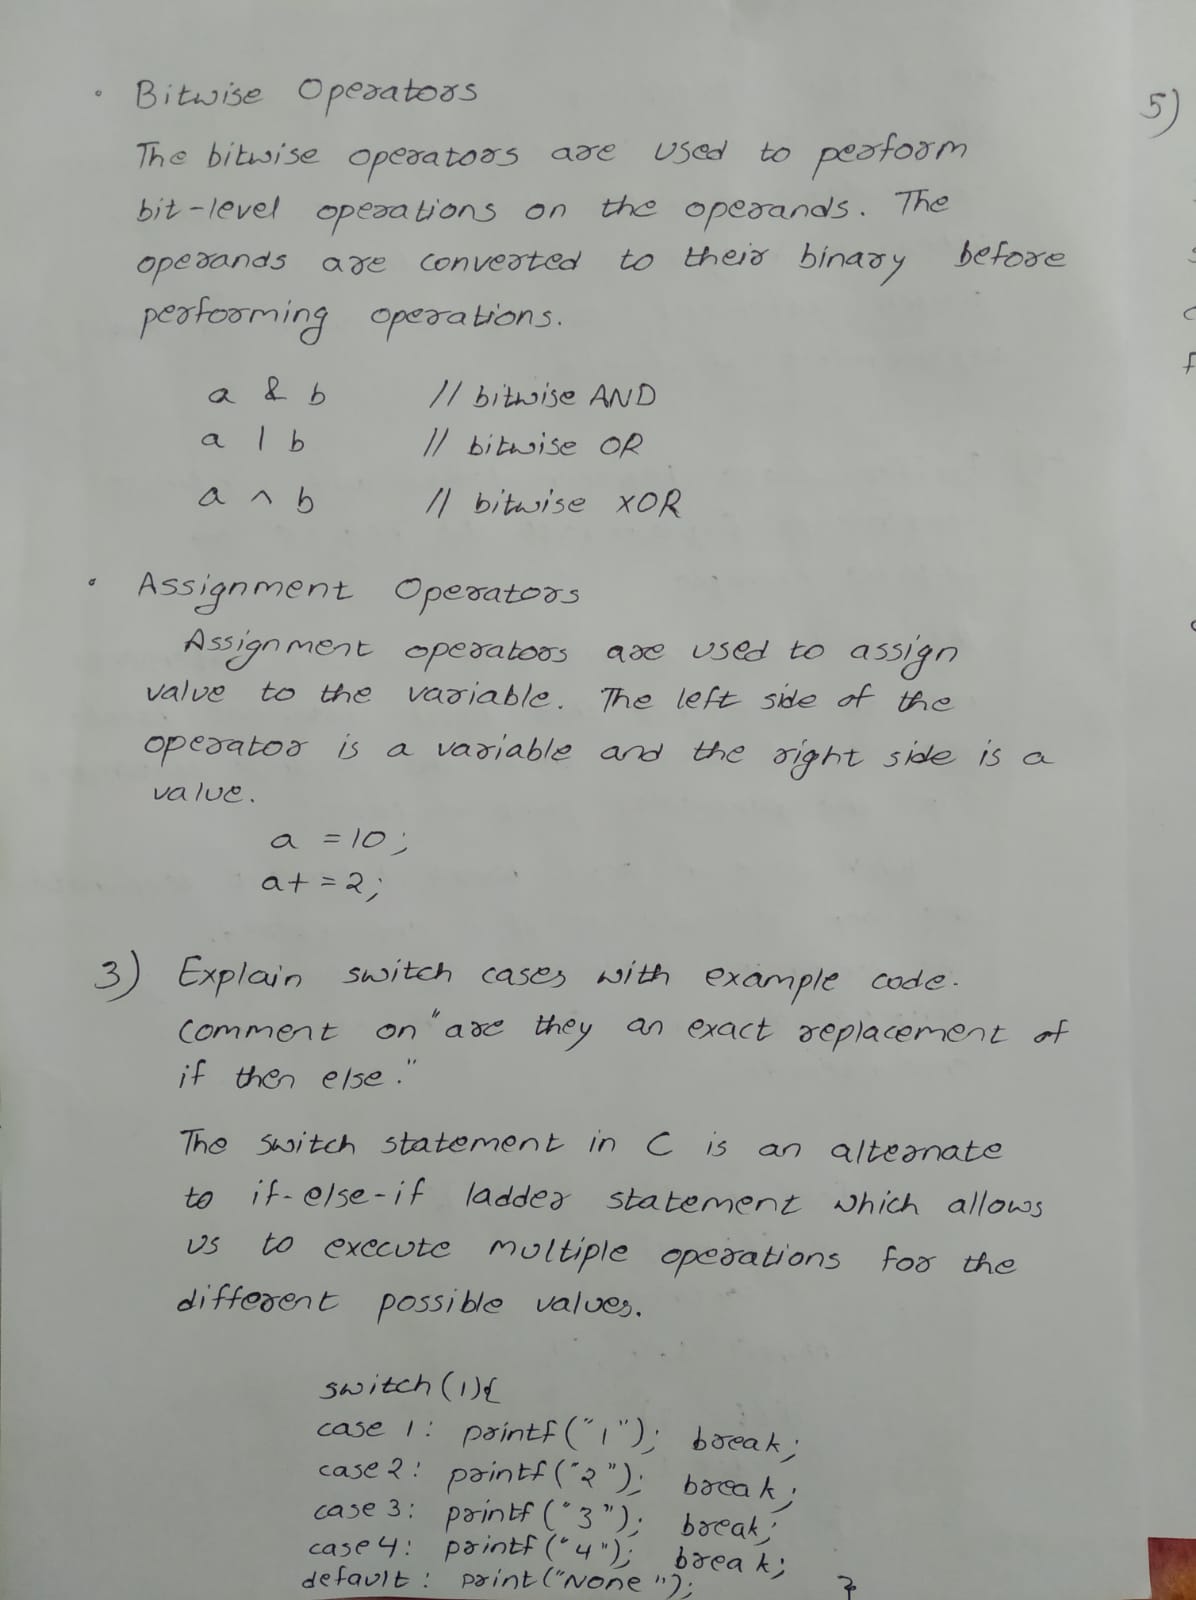 • Bitwise Operators
The bitwise operators are used to perform
bit-level operations on the operands. The
operands are converted to their binary before
performing operations.
a & b // bitwise AND
a | b // bitwise OR
a ^ b // bitwise XOR
• Assignment Operators
Assignment operators are used to assign
value to the variable. The left side of the
operator is a variable and the right side is a
value.
a = 10;
a += 2;
3) Explain switch cases with example code.
Comment on "are they an exact replacement of
if then else."
The switch statement in C is an alternate
to if-else-if ladder statement which allows
us to execute multiple operations for the
different possible values.
switch(1){
case 1: printf("1"); break;
case 2: printf("2"); break;
case 3: printf("3"); break;
case 4: printf("4"); break;
default: print("None"); }
5)